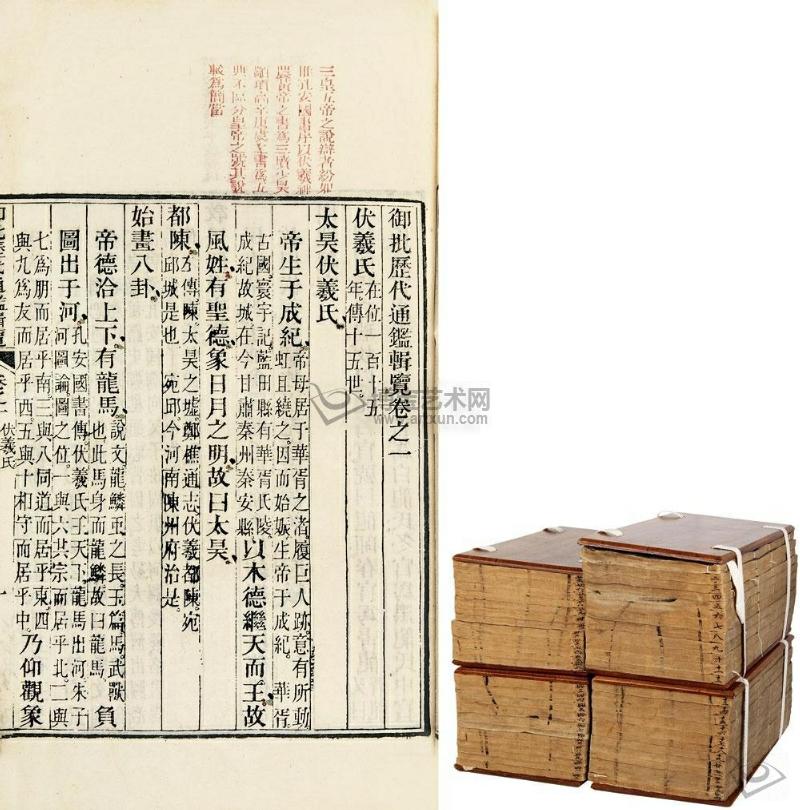 三皇五帝之說辯者紛如
惟孔安國書序以伏羲神
農黃帝之書爲三墳少昊
顓頊高辛唐虞之書爲五
典不區分皇帝之號其說
較爲簡當
御批歷代通鑑輯覽卷之一
伏羲氏在位一百十五年傳十五世
太昊伏羲氏
帝生于成紀帝母居于華胥之渚履巨人跡意有所動虹且繞之因而始娠生帝于成紀 華胥
古國寰宇記藍田縣有華胥氏陵成紀故城在今甘肅秦州秦安縣以木德繼天而王故
風姓有聖德象日月之明故曰太昊
都陳左傳陳太昊之墟鄭樵通志伏羲都陳宛邱城是也 宛邱今河南陳州府治是
始畫八卦
帝德洽上下有龍馬說文龍鱗蟲之長玉篇馬武獸也此馬身而龍鱗故曰龍馬負
圖出于河孔安國書傳伏羲氏王天下龍馬出河朱子河圖論圖之位一與六共宗而居乎北二與
七爲朋而居乎南三與八同道而居乎東四與九爲友而居乎西五與十相守而居乎中乃仰觀象
卷之一 伏羲氏 一
艺术网
www.artxun.com